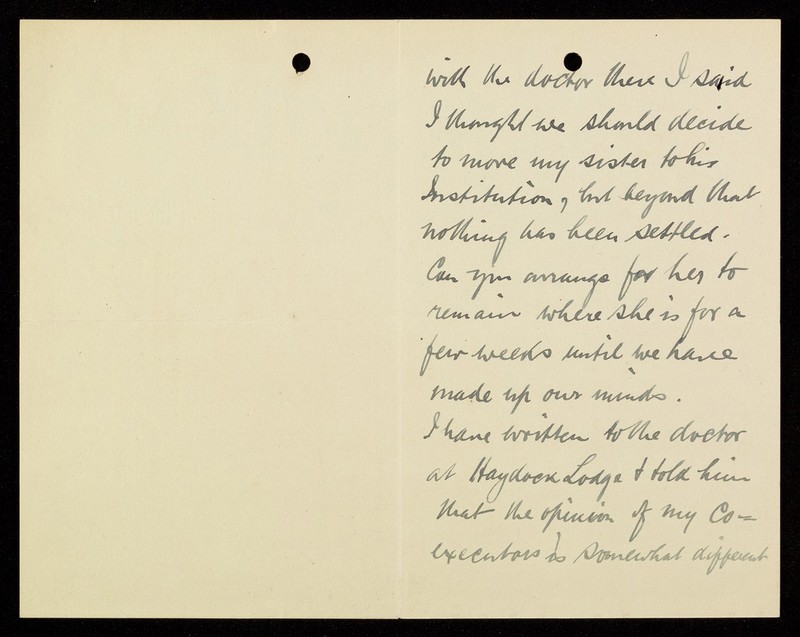 with the doctor there I said
I thought we should decide
to move my sister to his
Institution, but beyond that
nothing has been settled.
Can you arrange for her to
remain where she is for a
few weeks until we have
made up our minds.
I have written to the doctor
at Haydock Lodge & told him
that the opinion of my Co=
executors is somewhat different